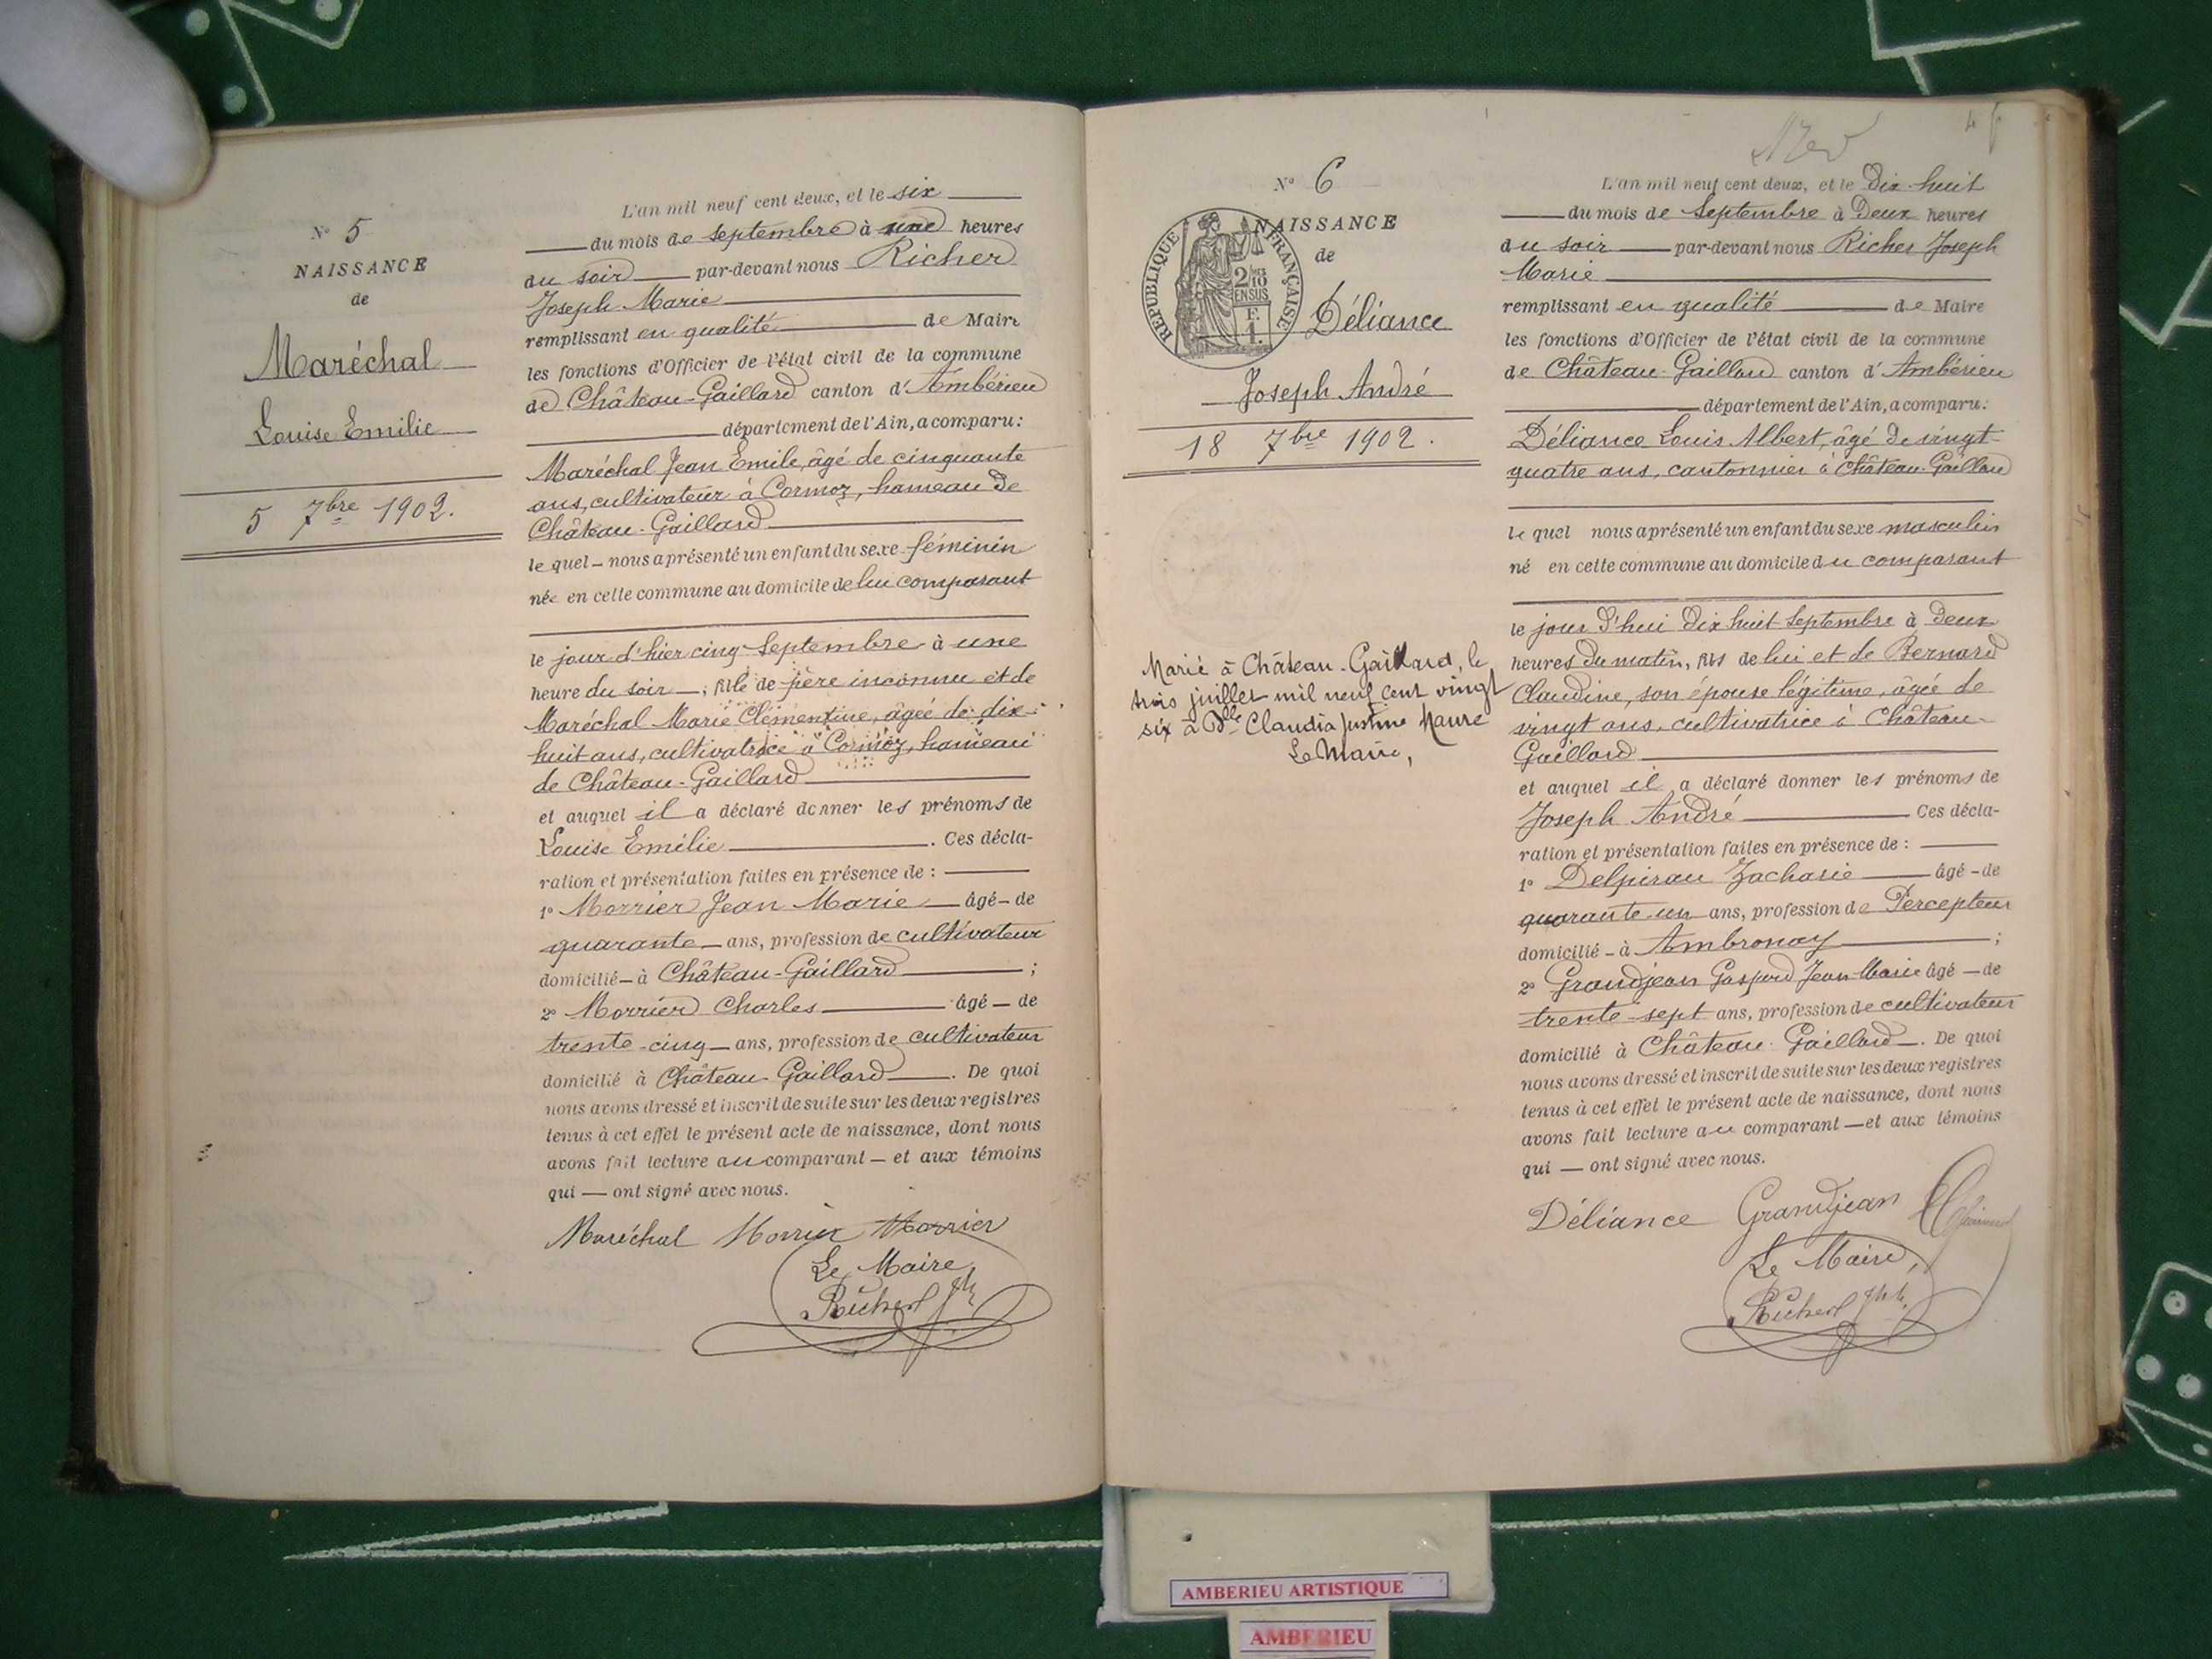 N° 5
NAISSANCE
de
Maréchal
Louise Emilie
5 7bre 1902.
L'an mil neuf cent deux, et le six
du mois de septembre à une heures
du soir par-devant nous Richer
Joseph Marie
remplissant en qualité de Maire
les fonctions d'Officier de l'état civil de la commune
de Château-Gaillard canton d'Ambérieu
département de l'Ain, a comparu:
Maréchal Jean Emile, âgé de cinquante
ans, cultivateur à Cormoz, hameau de
Château-Gaillard
le quel nous a présenté un enfant du sexe féminin
née en cette commune au domicile de lui comparant
le jour d'hier cinq septembre à une
heure du soir ; fille de père inconnu et de
Maréchal Marie Clémentine, âgée de dix-
huit ans, cultivatrice à Cormoz, hameau
de Château-Gaillard
et auquel il a déclaré donner les prénoms de
Louise Emélie . Ces décla-
ration et présentation faites en présence de :
1° Morrier Jean Marie âgé de
quarante ans, profession de cultivateur
domicilié à Château-Gaillard ;
2° Morrier Charles âgé de
trente-cinq ans, profession de cultivateur
domicilié à Château-Gaillard . De quoi
nous avons dressé et inscrit de suite sur les deux registres
tenus à cet effet le présent acte de naissance, dont nous
avons fait lecture au comparant et aux témoins
qui ont signé avec nous.
Maréchal Morrier Morrier
Le Maire
Richer Jh
N° 6
NAISSANCE
de
REPUBLIQUE FRANÇAISE
2/10
EN SUS
Déliance
Joseph André
18 7bre 1902.
Marié à Château-Gaillard, le
trois juillet mil neuf cent vingt
six à Dlle Claudia Justine
Le Maire,
L'an mil neuf cent deux, et le Dix-huit
du mois de Septembre à Deux heures
du soir par-devant nous Richer Joseph
Marie
remplissant en qualité de Maire
les fonctions d'Officier de l'état civil de la commune
de Château-Gaillard canton d'Ambérieu
département de l'Ain, a comparu:
Déliance Louis Albert, âgé de vingt-
quatre ans, cantonnier à Château-Gaillard
le quel nous a présenté un enfant du sexe masculin
né en cette commune au domicile du comparant
le jour d'hui Dix huit Septembre à Deux
heures du matin, fils de lui et de Bernard
Claudine, son épouse légitime, âgée de
vingt ans, cultivatrice à Château-
Gaillard
et auquel il a déclaré donner les prénoms de
Joseph André Ces décla-
ration et présentation faites en présence de :
1° Zacharie âgé de
quarante-un ans, profession de Percepteur
domicilié à Ambronay ;
2° Grandjean Gaspard Jean-Marie âgé de
trente-sept ans, profession de cultivateur
domicilié à Château-Gaillard . De quoi
nous avons dressé et inscrit de suite sur les deux registres
tenus à cet effet le présent acte de naissance, dont nous
avons fait lecture au comparant et aux témoins
qui ont signé avec nous.
Déliance Grandjean
Le Maire,
Richer Jh
AMBERIEU ARTISTIQUE
AMBERIEU